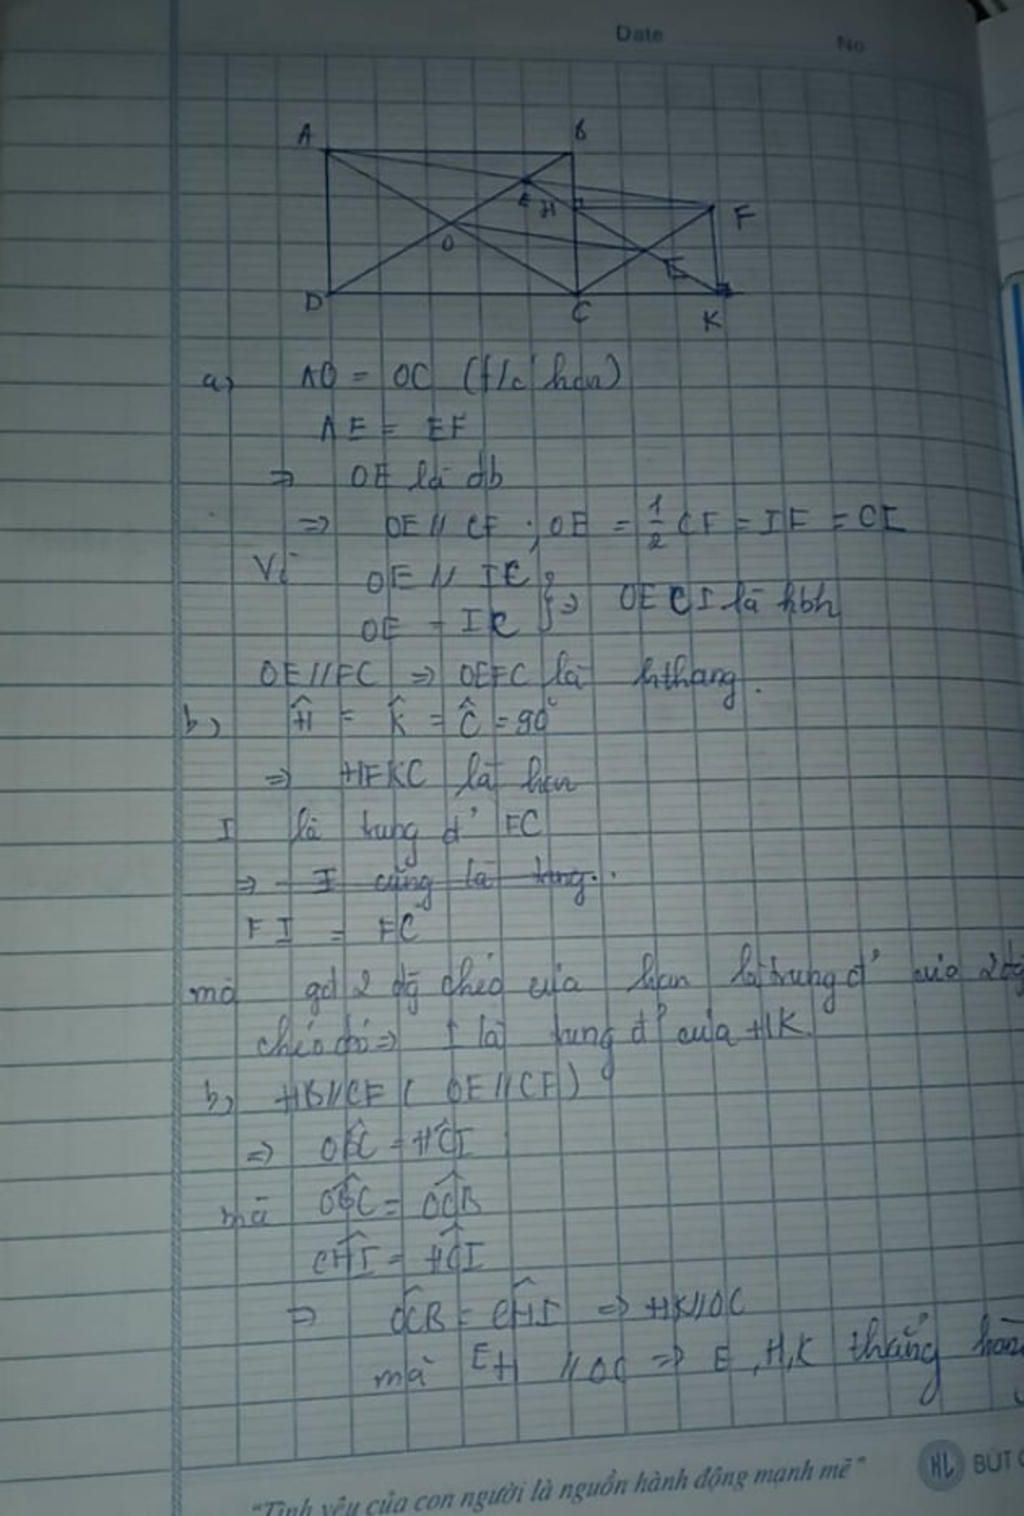 Date No
A B
E H F
O I
D C K
a) AO = OC (t/c hcn)
AE = EF
=> OE là đb
=> OE // CF ; OE = 1/2 CF = IF = CI
Vì OE // IC
OE = IC } => OECI là hbh
OE // FC => OEFC là hthang.
b) Ĥ = K̂ = Ĉ = 90°
=> HFKC là hcn
I là trung đ' FC
=> I cũng là trung..
FI = FC
mà gđ 2 đg chéo của hcn là trung đ' của 2 đg
chéo đó => I là trung đ' của HK
b, HB // CF ( OE // CF )
=> OBC = HCI
mà OBC = OCB
CHI = HCI
=> OCB = CHI => HK // OC
mà EH // OC => E, H, K thẳng hàng
"Tình yêu của con người là nguồn hành động mạnh mẽ" HL BÚT